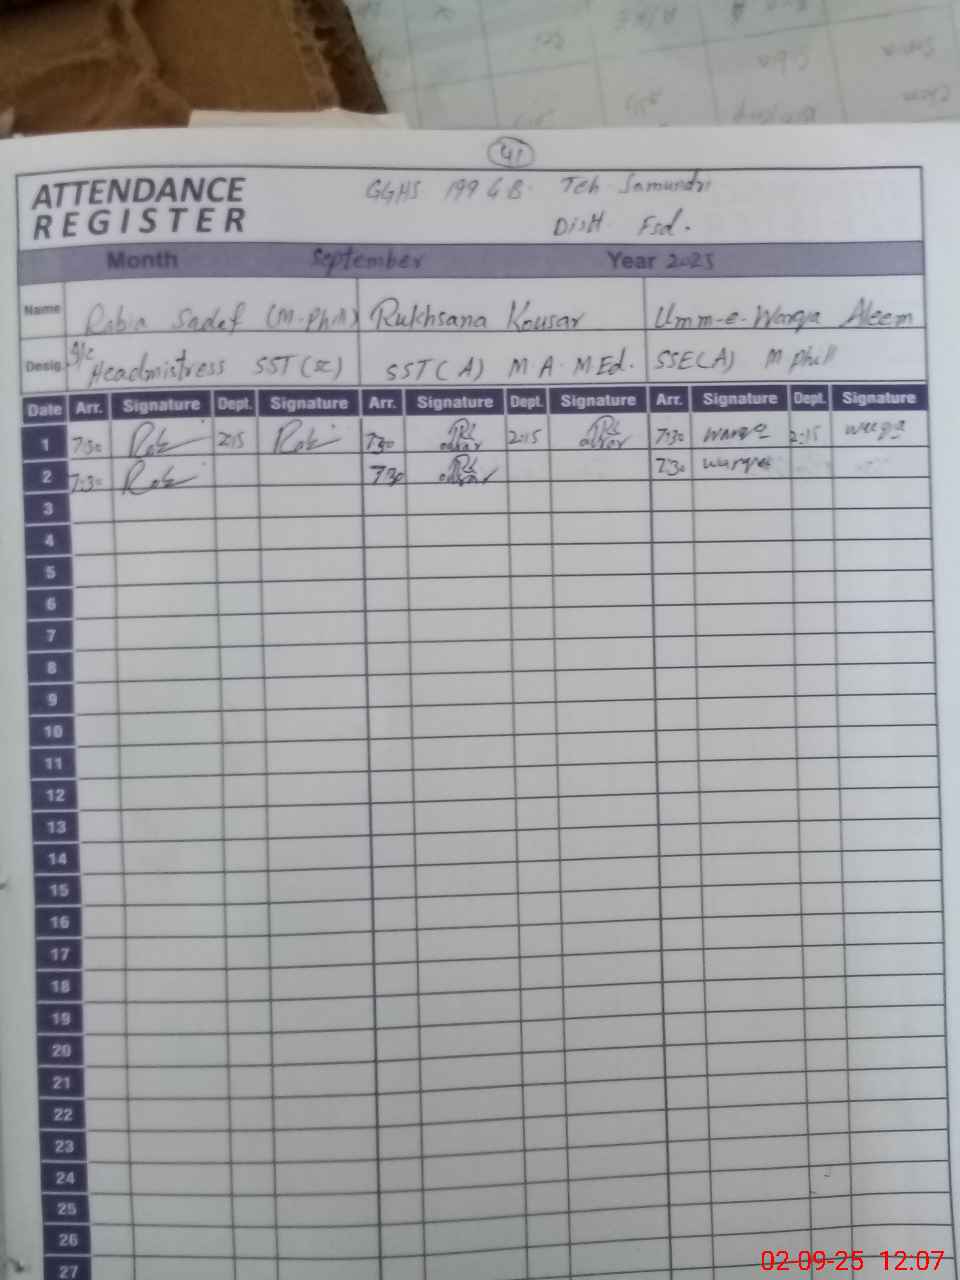 41
ATTENDANCE REGISTER
GGHS 199 GB. Teh Samundri
Distt. Fsd.
Month September Year 2025
Name Rabia Sadaf (M.Phil) Rukhsana Kousar Umm-e-Warqa Aleem
Desig. I/c Headmistress SST (SC) SST (A) M.A. M.Ed. SSE(A) M phill
Date Arr. Signature Dept. Signature Arr. Signature Dept. Signature Arr. Signature Dept. Signature
1 7:30 2:15 7:30 2:15 7:30 warqa 2:15 warqa
2 7:30 7:30 7:30 warqa
3
4
5
6
7
8
9
10
11
12
13
14
15
16
17
18
19
20
21
22
23
24
25
26
27
02-09-25 12.07